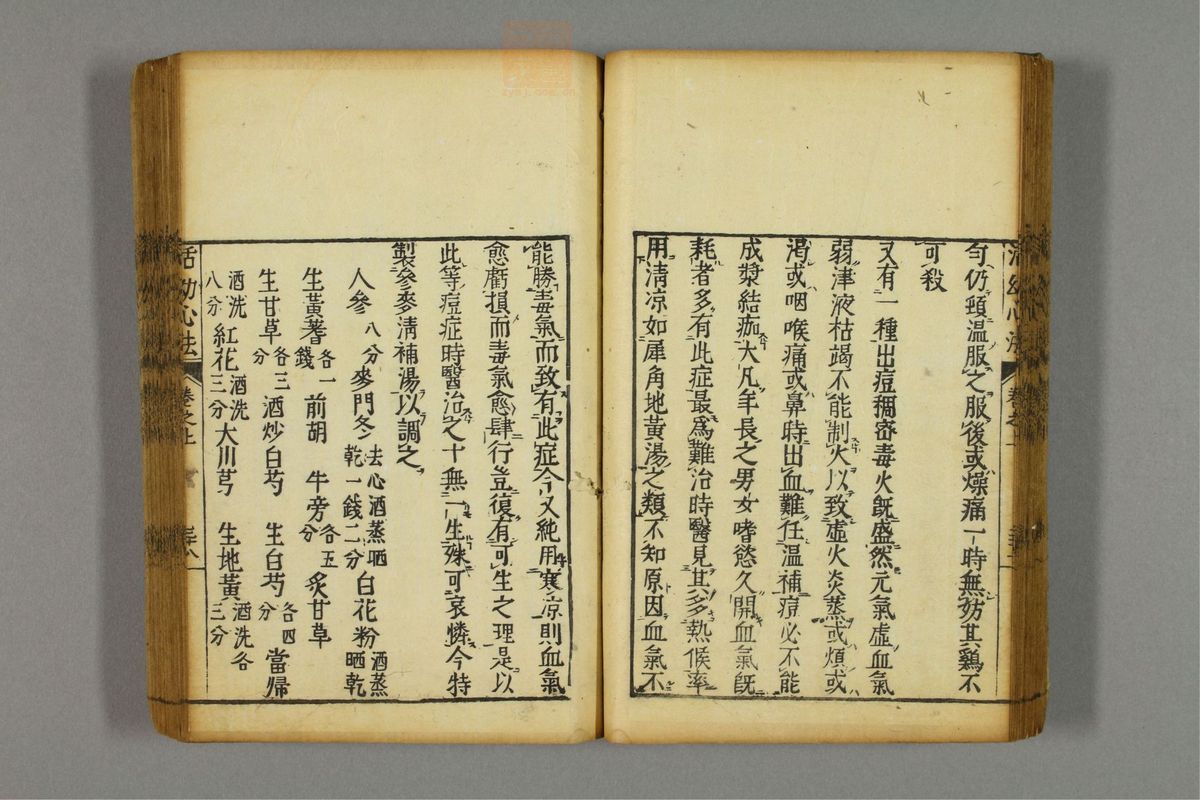 勻仍頸溫服之服後或燥痛一時無妨其鷄不
可殺
又有一種出痘稠密毒火既盛然元氣虛血氣
弱津液枯竭不能制火以致虛火炎蒸或煩或
渴或咽喉痛或鼻時出血難任溫補痘必不能
成漿結痂大凡年長之男女嗜慾久開血氣既
耗者多有此症最爲難治時醫見其多熱候率
用淸凉如犀角地黃湯之類不知原因血氣不
能勝毒氣而致有此症今又純用寒凉則血氣
愈虧損而毒氣愈肆行豈復有可生之理是以
此等痘症時醫治之十無一生殊可哀憐今特
製參麥淸補湯以調之
人參八分麥門冬去心酒蒸晒乾一錢二分白花粉酒蒸晒乾
生黃蓍各一錢前胡 牛旁各五分炙甘草
生甘草各三分酒炒白芍 生白芍各四分當帰
酒洗八分紅花酒洗三分大川芎 生地黃酒洗各三分
活幼心法 卷之上